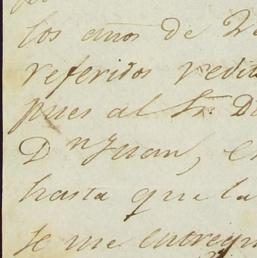 los años de
referidos redit
pues al Sr. D
Dn Juan, e
hasta que la
se me entregu